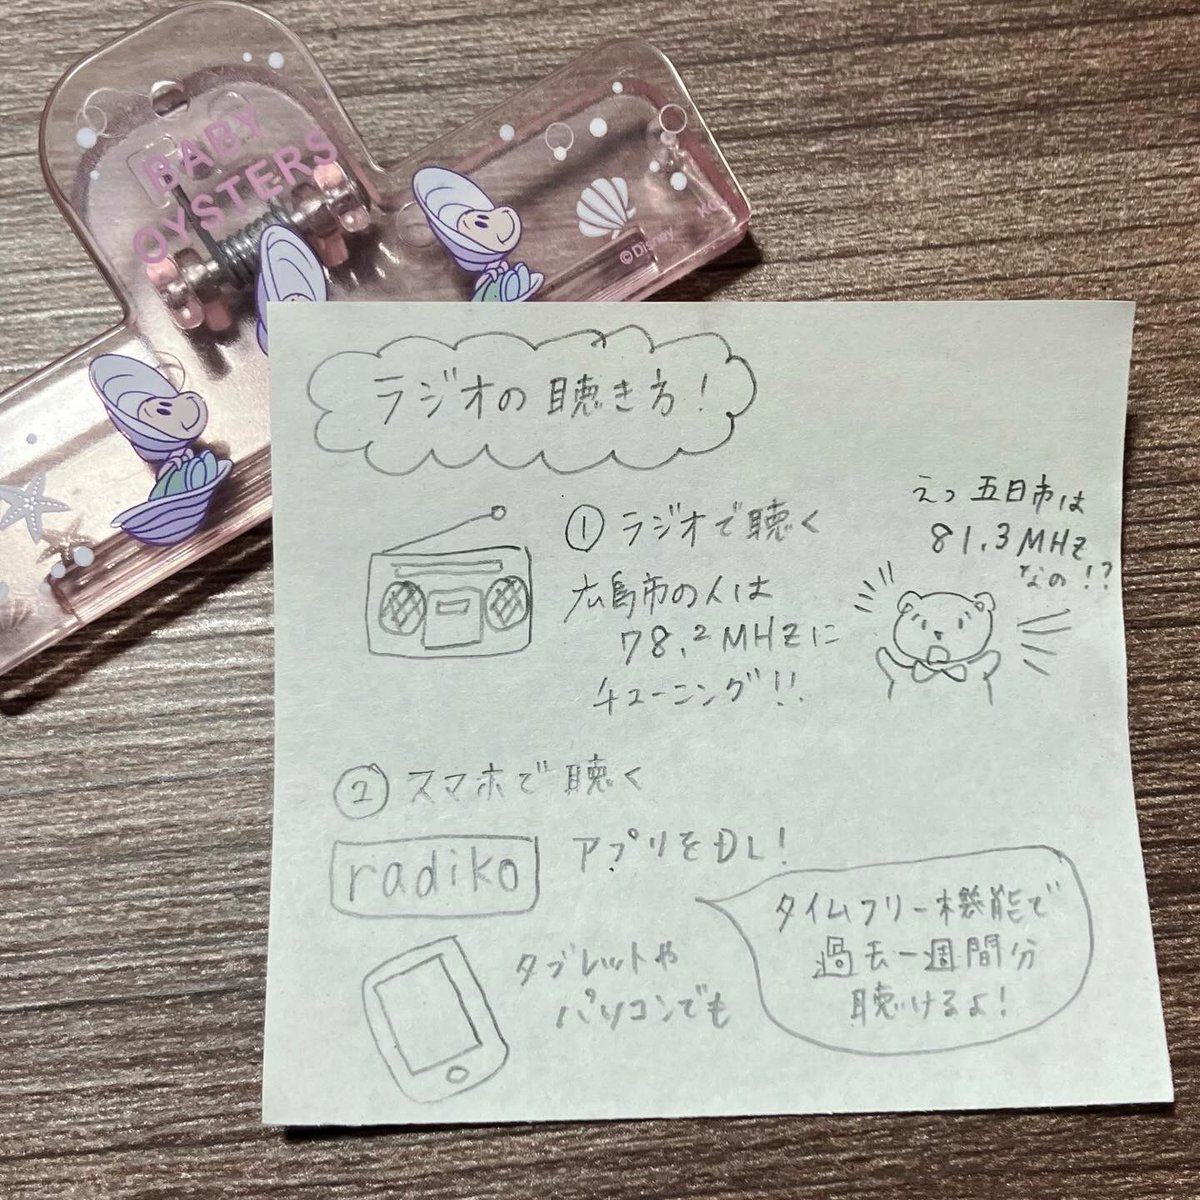 BABY
OYSTERS
©Disney
ラジオの聴き方!
① ラジオで聴く
広島市の人は
78.2MHzに
チューニング!!
えっ五日市は
81.3MHz
なの!?
② スマホで聴く
radiko
アプリをDL!
タブレットや
パソコンでも
タイムフリー機能で
過去一週間分
聴けるよ!